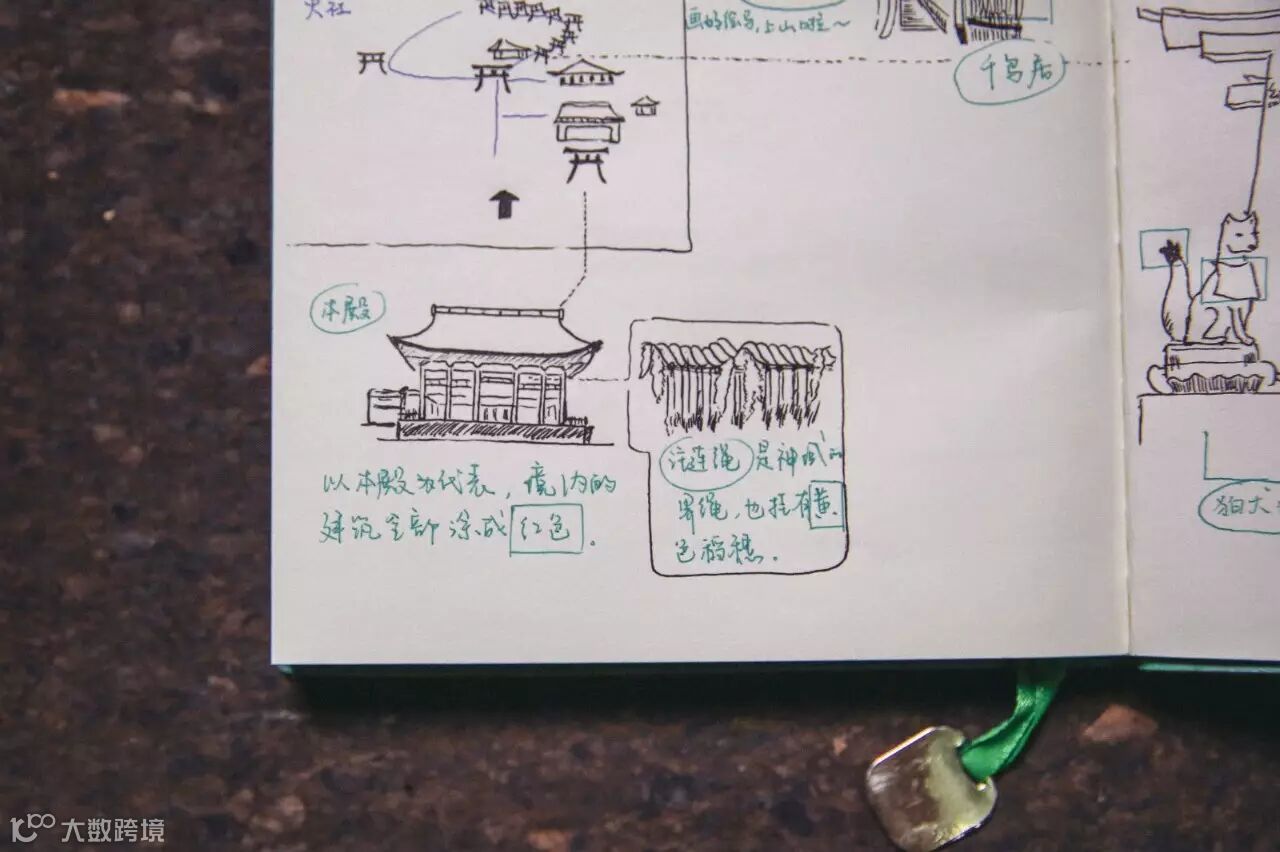 火社
画的像鸟，上山啦～
千鸟居
本殿
以本殿为代表，境内的
建筑全部涂成红色．
注连绳是神域的
界绳，也挂有黄
色稻穗．
狛犬
大数跨境